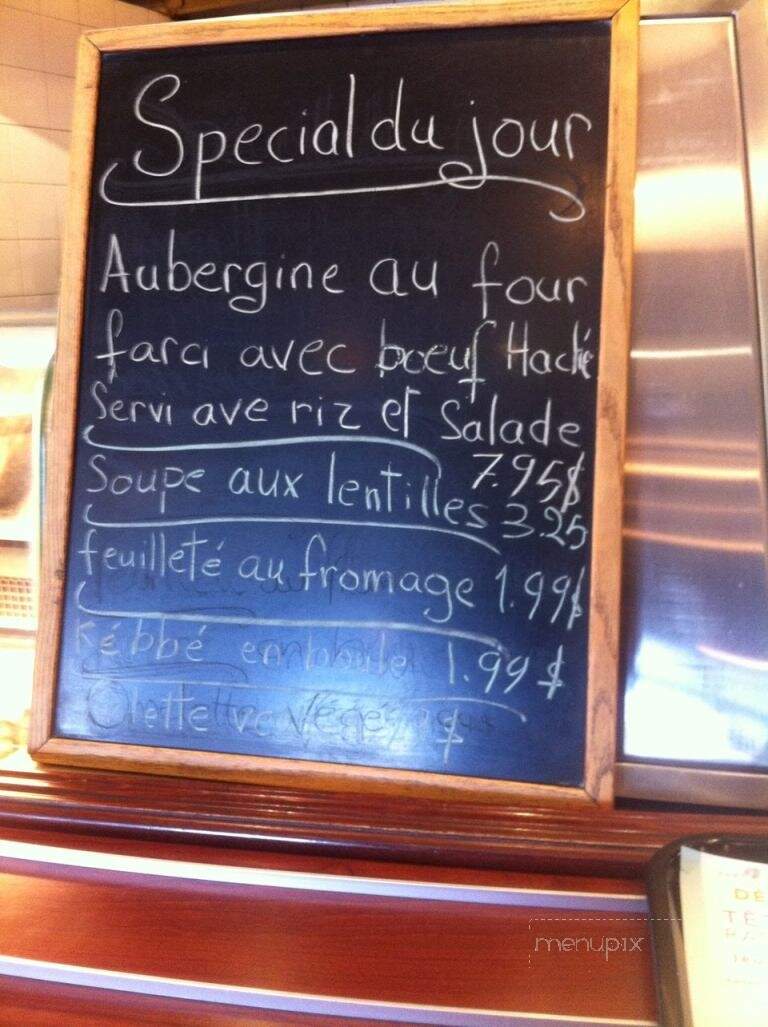 Special du jour
Aubergine au four
farci avec boeuf Haché
Servi ave riz et Salade
7.95$
Soupe aux lentilles 3.25
feuilleté au fromage 1.99$
Kébbé en boule 1.99$
$
menupix
DÉ